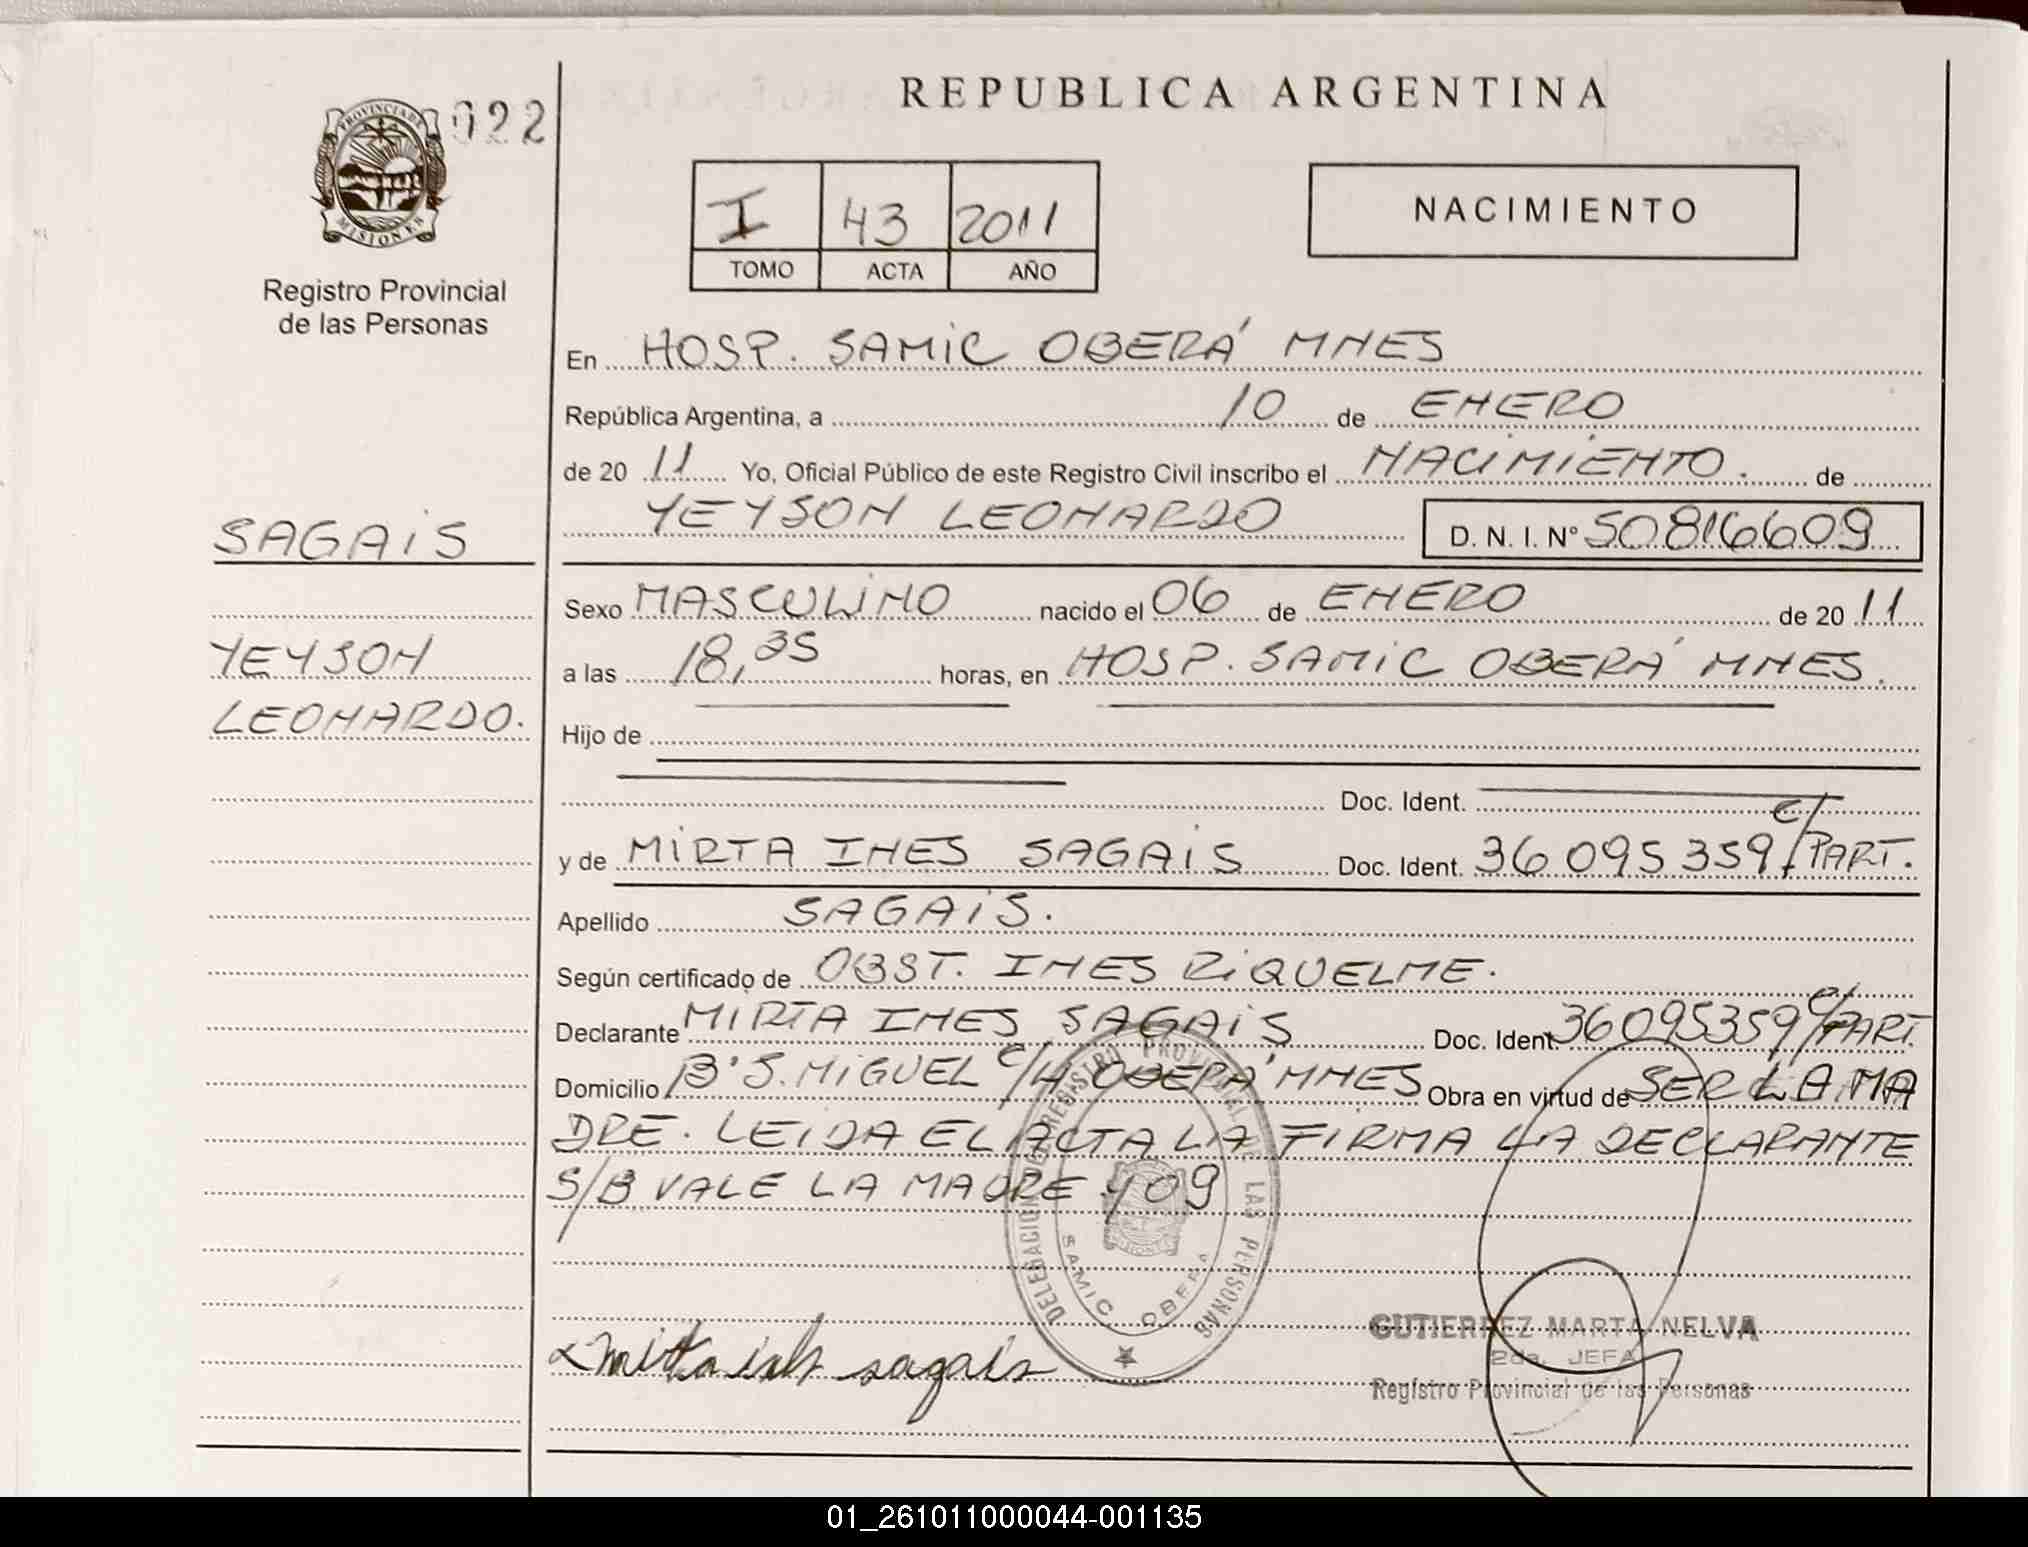 REPUBLICA ARGENTINA
022
PROVINCIA DE
MISIONES
Registro Provincial
de las Personas
I 43 2011
TOMO ACTA AÑO
NACIMIENTO
En HOSP. SAMIC OBERÁ MNES
República Argentina, a 10 de ENERO
de 20 11 Yo, Oficial Público de este Registro Civil inscribo el NACIMIENTO. de
YEYSON LEONARDO D. N. I. N° 50816609
SAGAIS
YEYSON
LEONARDO.
Sexo MASCULINO nacido el 06 de ENERO de 20 11
a las 18,35 horas, en HOSP. SAMIC OBERÁ MNES.
Hijo de
Doc. Ident.
y de MIRTA INES SAGAIS Doc. Ident. 36095359 c/PART.
Apellido SAGAIS.
Según certificado de OBST. INES RIQUELME.
Declarante MIRTA INES SAGAIS Doc. Ident 36095359 c/PART.
Domicilio B° S. MIGUEL OBERÁ MNES Obra en virtud de SER LA MA
DRE. LEIDA EL ACTA LA FIRMA LA DECLARANTE
S/B VALE LA MADRE y 09
DELEGACION DEL REGISTRO PROVINCIAL DE LAS PERSONAS
SAMIC OBERA
mirta sagais
GUTIERREZ MARTA NELVA
2da. JEFA
Registro Provincial de las Personas
01_261011000044-001135